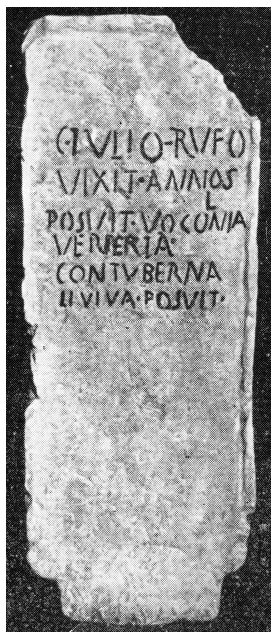 C·IVLIO·RVFO
VIXIT·ANNIOS
L
POSIVIT·VOCONIA
VENERIA·
CONTVBERNA
LI VIVA·POSVIT·